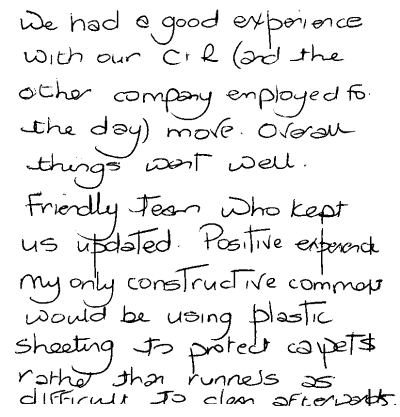 We had a good experience
with our C+R (and the
other company employed for
the day) move. Overall
things went well.
Friendly team who kept
us updated. Positive experience
My only constructive comment
would be using plastic
sheeting to protect carpets
rather than runners as
difficult to clean afterwards.